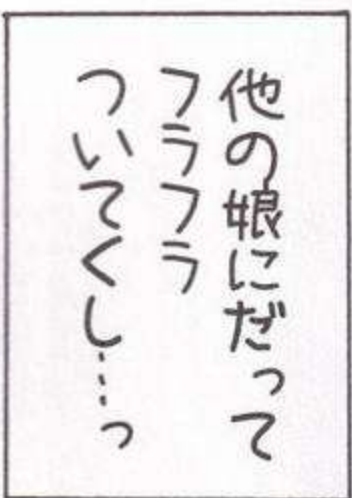 他の娘にだって
フラフラ
ついてくし…っ